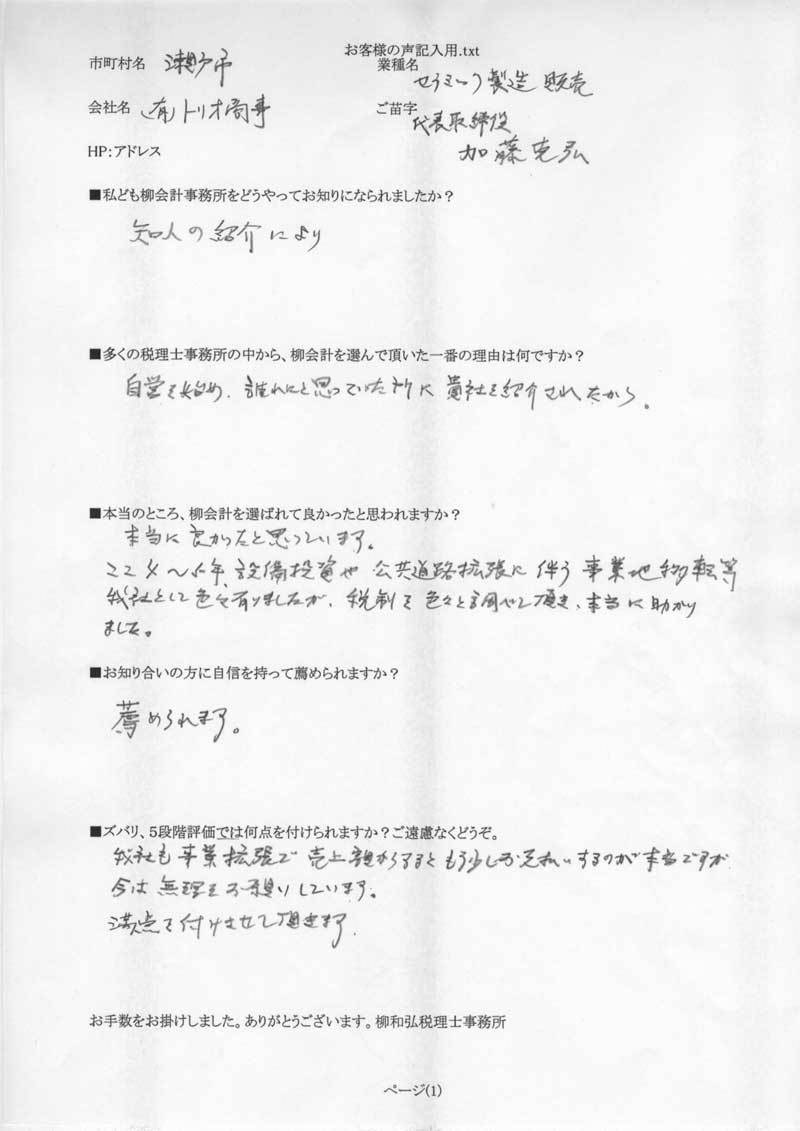 お客様の声記入用.txt
市町村名 瀬戸市
業種名 セラミック製造販売
会社名 (有)トリオ商事
ご苗字 代表取締役
加藤克弘
HP:アドレス
■私ども柳会計事務所をどうやってお知りになられましたか?
知人の紹介により
■多くの税理士事務所の中から、柳会計を選んで頂いた一番の理由は何ですか?
自営を始め、誰れにと思っていた所に貴社を紹介されたから。
■本当のところ、柳会計を選ばれて良かったと思われますか?
本当に良かったと思っています。
ここ4〜5年、設備投資や公共道路拡張に伴う事業地移転等
我社として色々有りましたが、税制を色々と調べて頂き、本当に助かり
ました。
■お知り合いの方に自信を持って薦められますか?
薦められます。
■ズバリ、5段階評価では何点を付けられますか?ご遠慮なくどうぞ。
我社も事業拡張で売上額からするともう少しお支払いするのが本当ですが
今は無理をお願いしています。
満点を付けさせて頂きます
お手数をお掛けしました。ありがとうございます。柳和弘税理士事務所
ページ(1)